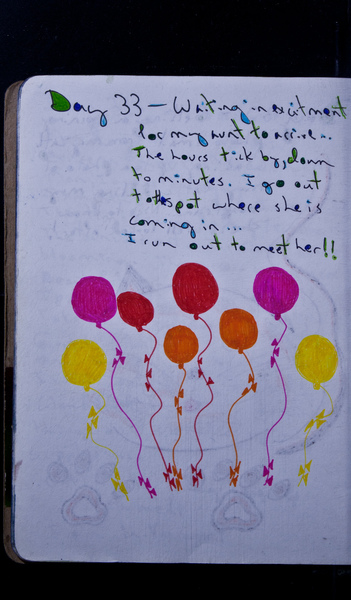 Day 33 — Waiting in excitment
for my aunt to arrive...
The hours tick by, down
to minutes. I go out
to the spot where she is
coming in...
I run out to meet her!!